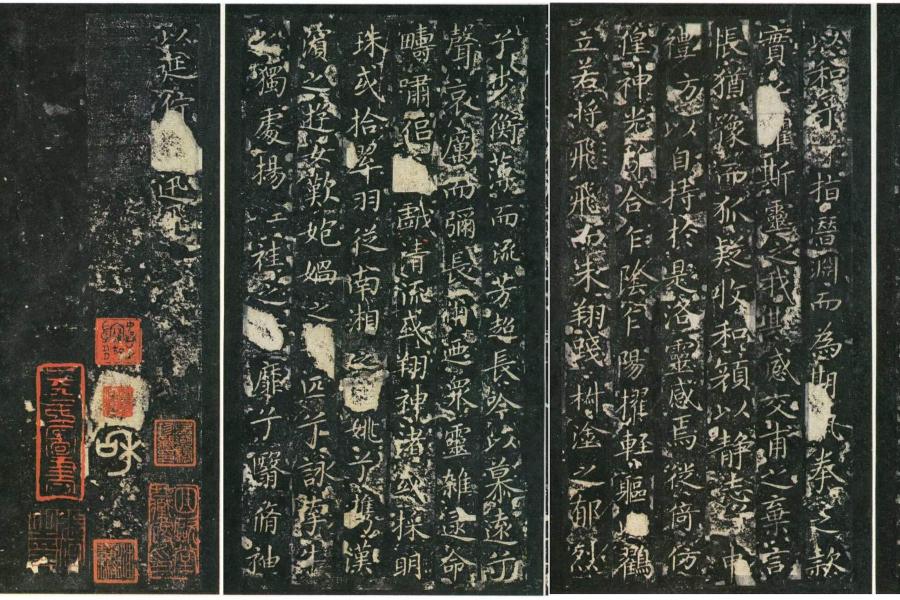 以和予兮指潛淵而為期執拳之款
實懼斯靈之我欺感交甫之棄言
悵猶豫而狐疑收和顏以静志兮申
禮方以自持於是洛靈感焉徙倚仿
偟神光離合乍陰乍陽擢輕軀鶴
立若將飛而未翔踐椒塗之郁烈
兮步衡薄而流芳超長吟以慕遠兮
聲哀厲而彌長爾迺眾靈雜遝命
疇嘯侶戲清流或翔神渚或採明
珠或拾翠羽從南湘之姚兮攜漢
濱之遊女歎匏媧之匹兮詠牽牛
之獨處揚袿之靡兮翳脩袖
以延佇迅飛